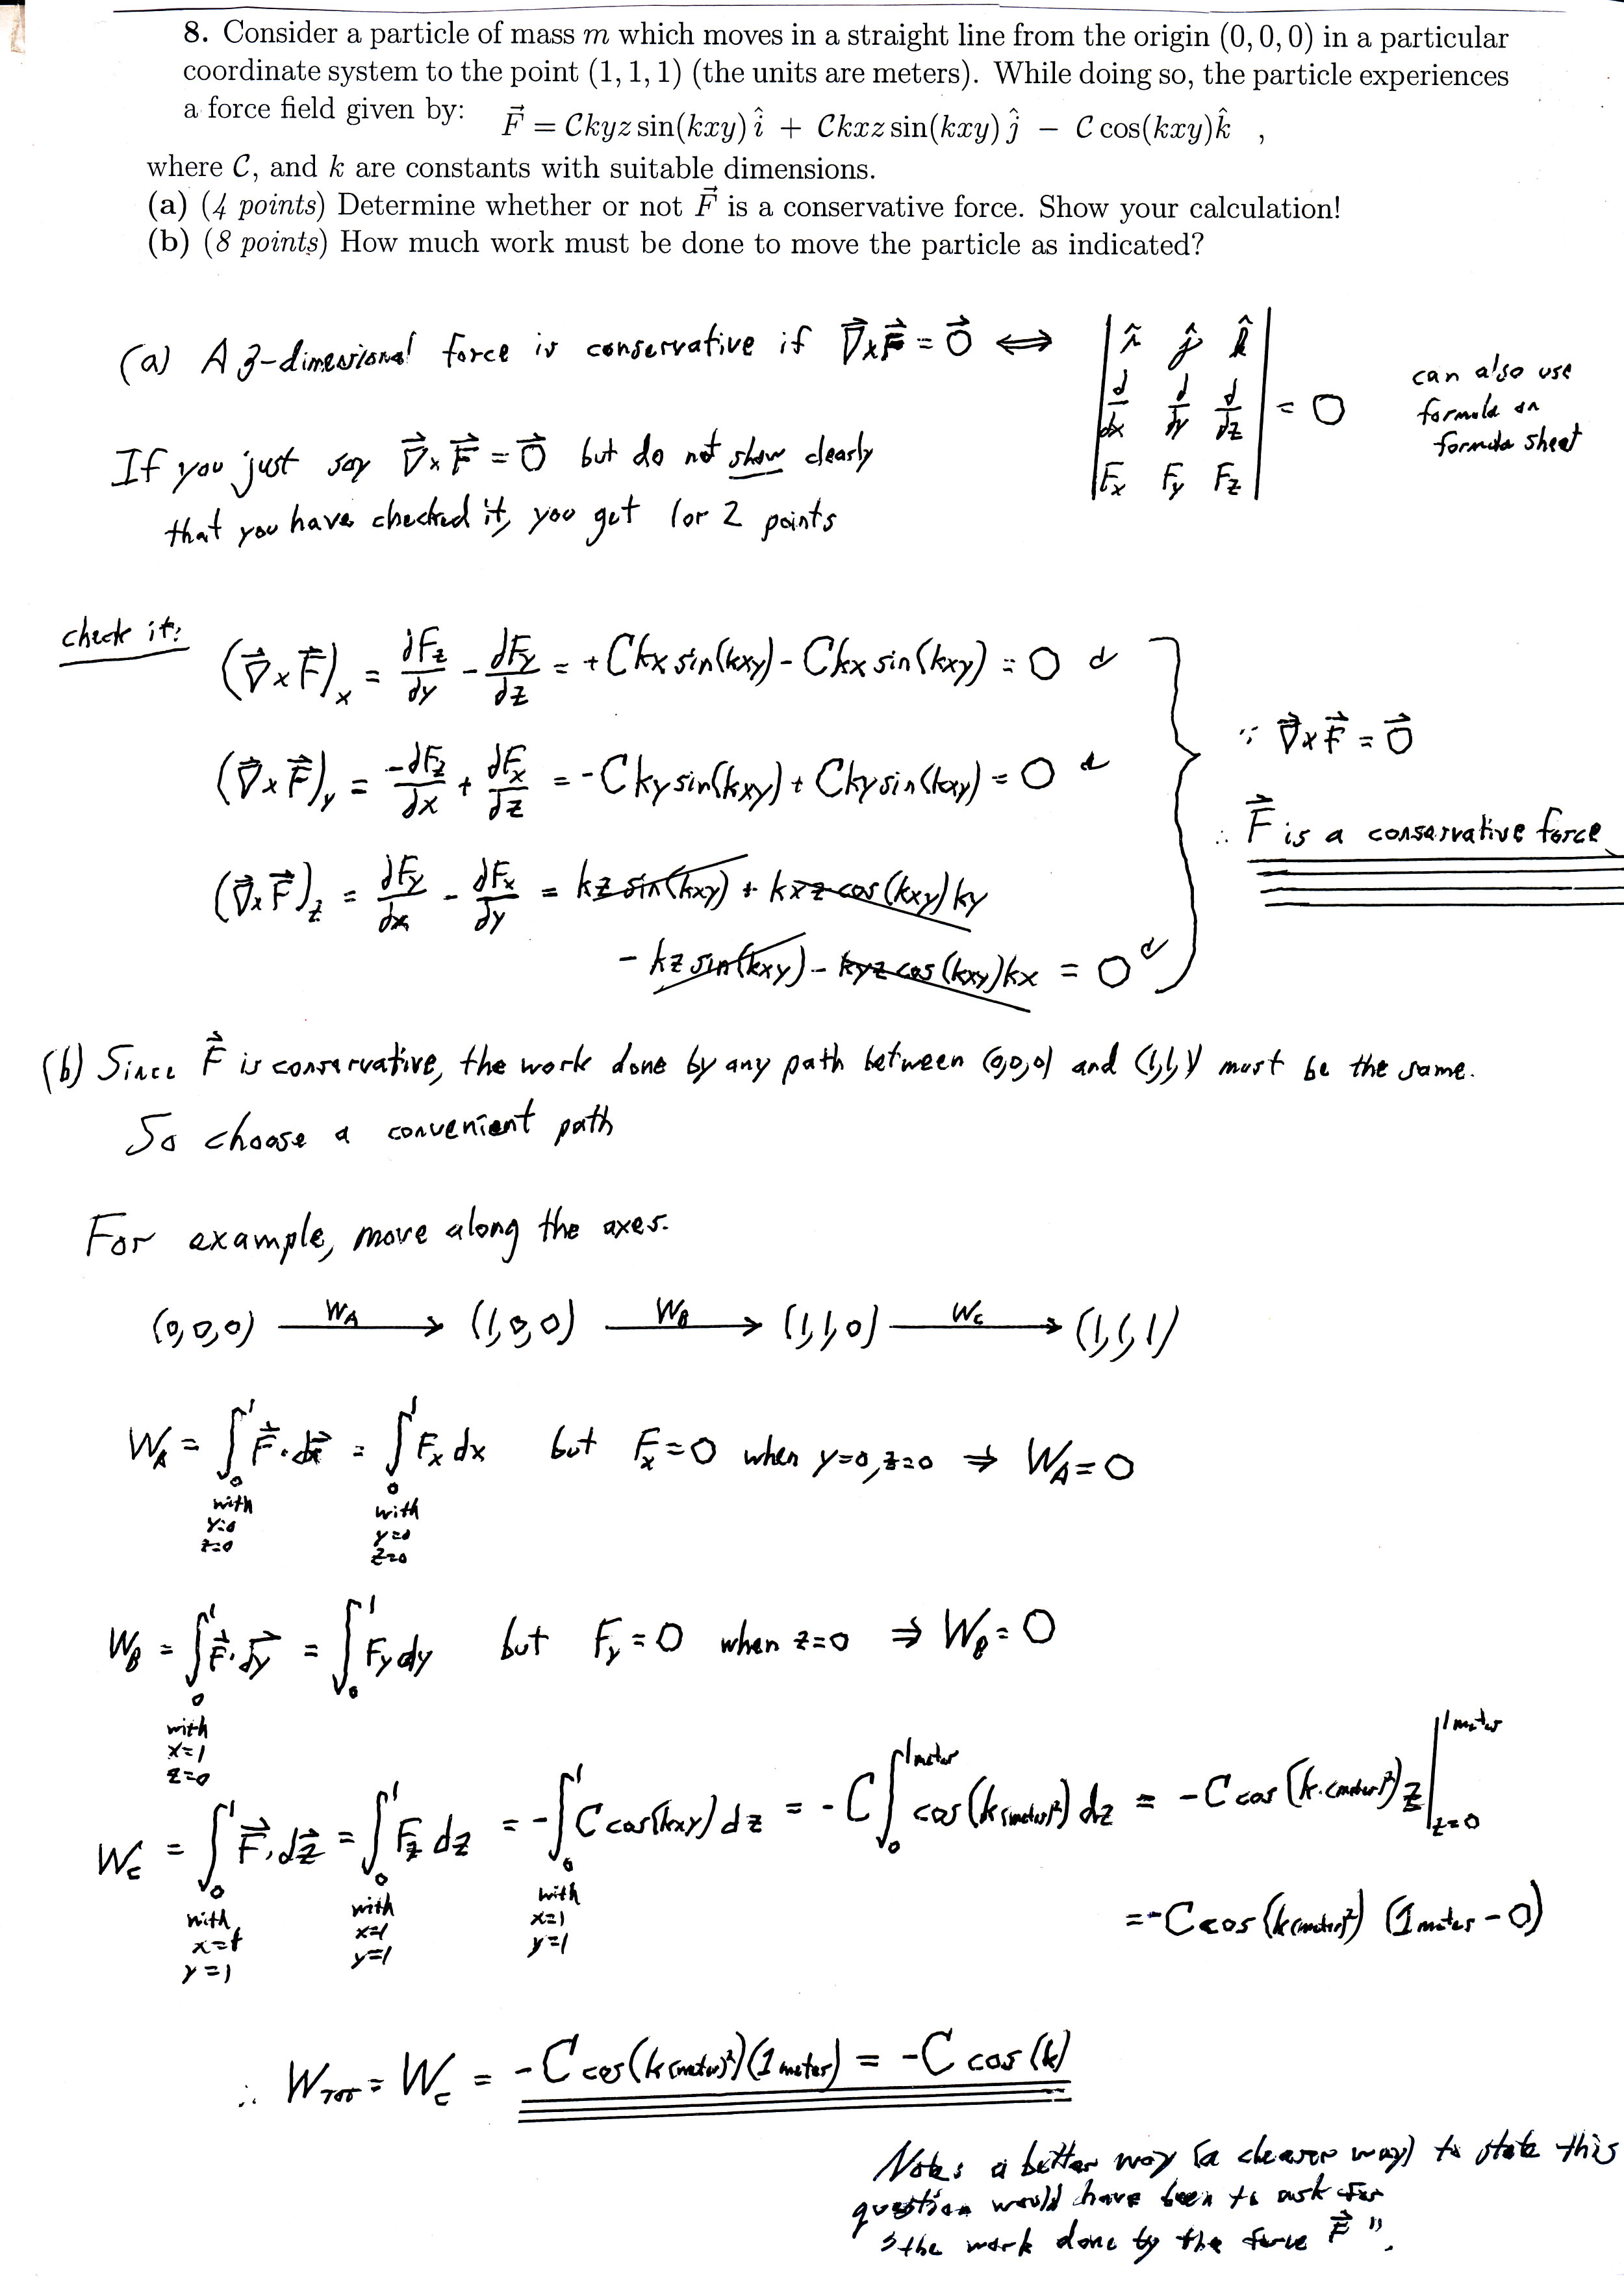 8. Consider a particle of mass m which moves in a straight line from the origin (0, 0, 0) in a particular
coordinate system to the point (1, 1, 1) (the units are meters). While doing so, the particle experiences
a force field given by: F⃗ = Ckyz sin(kxy) î + Ckxz sin(kxy) ĵ − C cos(kxy)k̂ ,
where C, and k are constants with suitable dimensions.
(a) (4 points) Determine whether or not F⃗ is a conservative force. Show your calculation!
(b) (8 points) How much work must be done to move the particle as indicated?
(a) A 3-dimensional force is conservative if ∇⃗×F⃗ = 0⃗ ⟺ | î ĵ k̂ |
| d/dx d/dy d/dz | = 0
| Fx Fy Fz |
can also use
formula on
formula sheet
If you just say ∇⃗×F⃗ = 0⃗ but do not show clearly
that you have checked it, you get 1 or 2 points
check it:
(∇⃗×F⃗)x = ∂Fz/∂y - ∂Fy/∂z = +Ckx sin(kxy) - Ckx sin(kxy) = 0 ✓
(∇⃗×F⃗)y = -∂Fz/∂x + ∂Fx/∂z = -Cky sin(kxy) + Cky sin(kxy) = 0 ✓
(∇⃗×F⃗)z = ∂Fy/∂x - ∂Fx/∂y = kz sin(kxy) + kxz cos(kxy) ky
- kz sin(kxy) - kyz cos(kxy) kx = 0 ✓
∵ ∇⃗×F⃗ = 0⃗
∴ F⃗ is a conservative force
(b) Since F⃗ is conservative, the work done by any path between (0,0,0) and (1,1,1) must be the same.
So choose a convenient path
For example, move along the axes.
(0,0,0) —WA→ (1,0,0) —WB→ (1,1,0) —WC→ (1,1,1)
WA = ∫₀¹ F⃗·dx⃗ = ∫₀¹ Fx dx but Fx=0 when y=0, z=0 ⇒ WA=0
with with
y=0 y=0
z=0 z=0
WB = ∫₀¹ F⃗·dy⃗ = ∫₀¹ Fy dy but Fy=0 when z=0 ⇒ WB=0
with
x=1
z=0
WC = ∫₀¹ F⃗·dz⃗ = ∫₀¹ Fz dz = -∫₀¹ C cos(kxy) dz = -C ∫₀^(1 meter) cos(k(meter)²) dz = -C cos(k·(meter)²) z |_(z=0)^(1 meter)
with with with
x=1 x=1 x=1
y=1 y=1 y=1
= -C cos(k(meter)²) (1 meter - 0)
∴ WTOT = WC = -C cos(k(meter)²)(1 meter) = -C cos(k)
Note: a better way (a clearer way) to state this
question would have been to ask for
"the work done by the force F⃗".